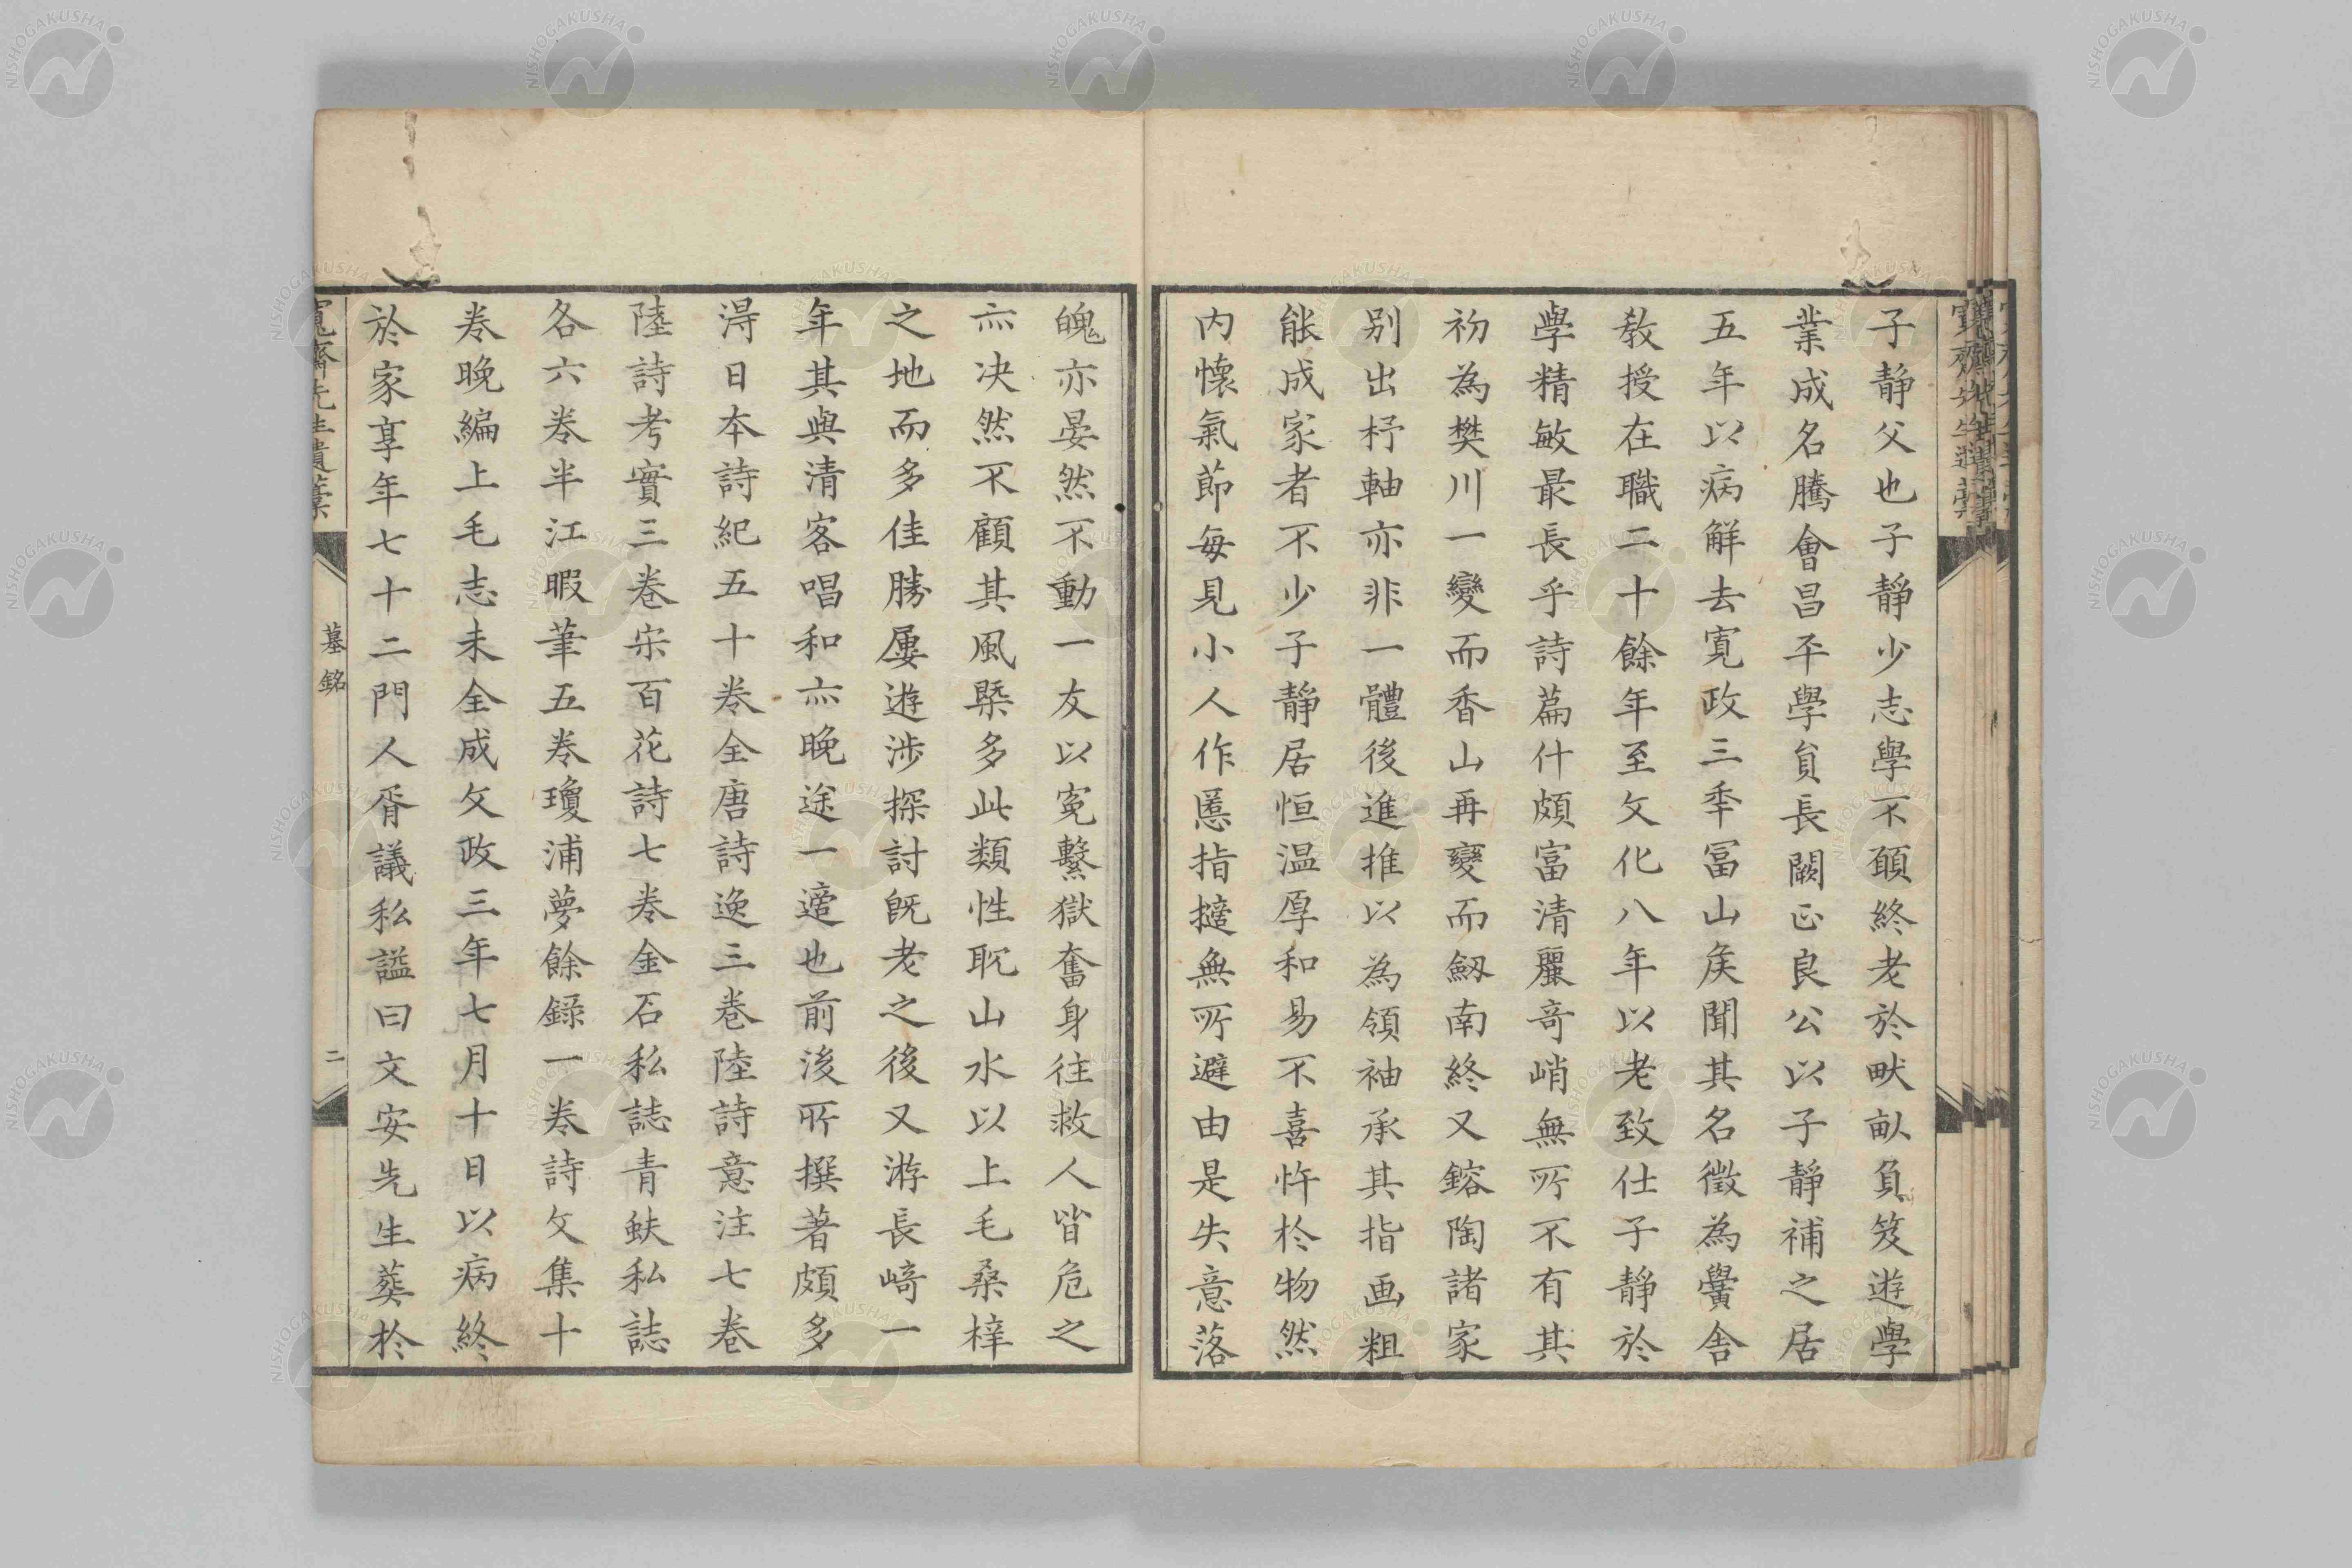 子靜父也子靜少志學不頋終老於畎畒負笈遊學
業成名騰會昌平學貟長闕正良公以子靜補之居
五年以病解去寬政三秊冨山矦聞其名徵為黌舎
敎授在職二十餘年至文化八年以老致仕子靜於
學精敏最長乎詩萹什頗富清麗竒峭無所不有其
初為樊川一變而香山再變而劔南終又鎔陶諸家
别出杼軸亦非一體後進推以為領袖承其指画粗
能成家者不少子靜居恒温厚和易不喜忤於物然
内懷氣節每見小人作慝指擿無所避由是失意落
魄亦晏然不動一友以寃繫獄奮身往救人皆危之
亦决然不顧其風槩多此類性耽山水以上毛桑梓
之地而多佳勝屢遊涉探討旣老之後又游長﨑一
年其與清客唱和亦晚途一適也前後所撰著頗多
淂日本詩紀五十卷全唐詩逸三卷陸詩意注七卷
陸詩考實三卷宋百花詩七卷金石私誌青蚨私誌
各六卷半江暇筆五卷瓊浦夢餘錄一卷詩文集十
卷晚編上毛志未全成文政三年七月十日以病終
於家享年七十二門人胥議私謚曰文安先生葬於
寬齋先生遺稾
墓銘
二
NISHOGAKUSHA